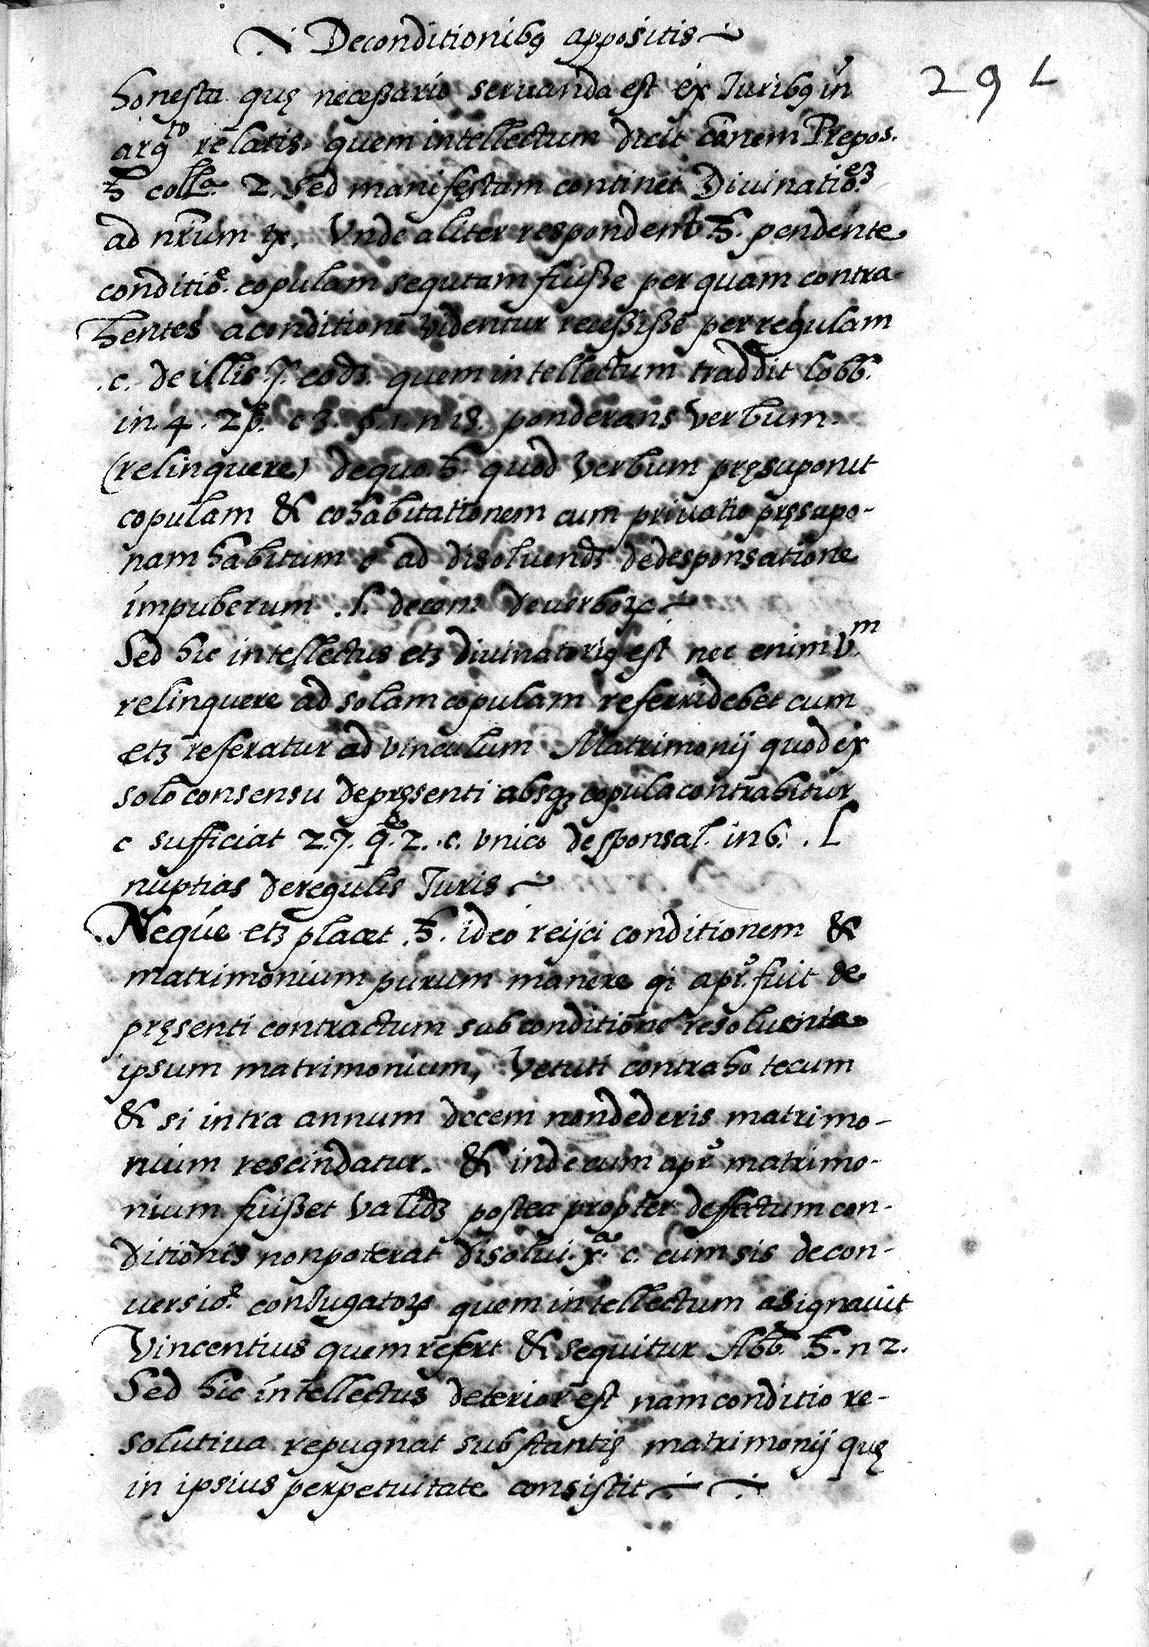 Deconditionibꝯ appositis
291
honesta quę necessario seruanda est ex Juribꝯ in
argto relatis. quem intellectum dicit cōnem Prepos.
ħ colla. 2. Sed manifestam continet Divinatioeꝫ
ad nrūm tx. Vnde aliter respondent ħ. pendente
conditioe. copulam sequtam fuisse per quam contra
hentes a conditione videntur recessisse per regulam
c. de illis j. eodꝫ. quem intellectum traddit Cobb.
in. 4. 2 p. c 3. §. 1. n 18. ponderans verbum.
(relinquere) dequo ħ. quod verbum pręsuponit
copulam & cohabitationem cum priuatio pręsupo-
nam habitum c ad disoluendā dedesponsatione
impuberum .l. decem deverboꝝ
Sed hic intellectus etꝫ divinatoriꝯ est nec enim v.m
relinquere ad solam copulam referri debet cum
etꝫ referatur ad vinculum Matrimonij quod ex
solo consensu depręsenti absqꝫ copula contrahitur
c sufficiat 27. q. 2. c. vnico desponsal. in 6. . L
nuptias deregulis Juris
Neque etꝫ placet ħ. ideo reijci conditionem &
matrimonium purum manere qi apr. fuit de
pręsenti contractum sub conditione resoluenta
ipsum matrimonium, Veluti contraho tecum
& si intra annum decem nondederis matrimo-
nium rescindatur. & inde cum apr matrimo-
nium fuisset validꝫ postea propter deffectum con-
ditionis nonpoterat disolui. xa. c. cum sis decon-
uersioe. conjugatoꝝ quem intellectum asignauit
Vincentius quem refert & sequitur Abb. ħ. n 2.
Sed hic intellectus deterior est nam conditio re-
solutiua repugnat substantię matrimonij quę
in ipsius perpetuitate consistit